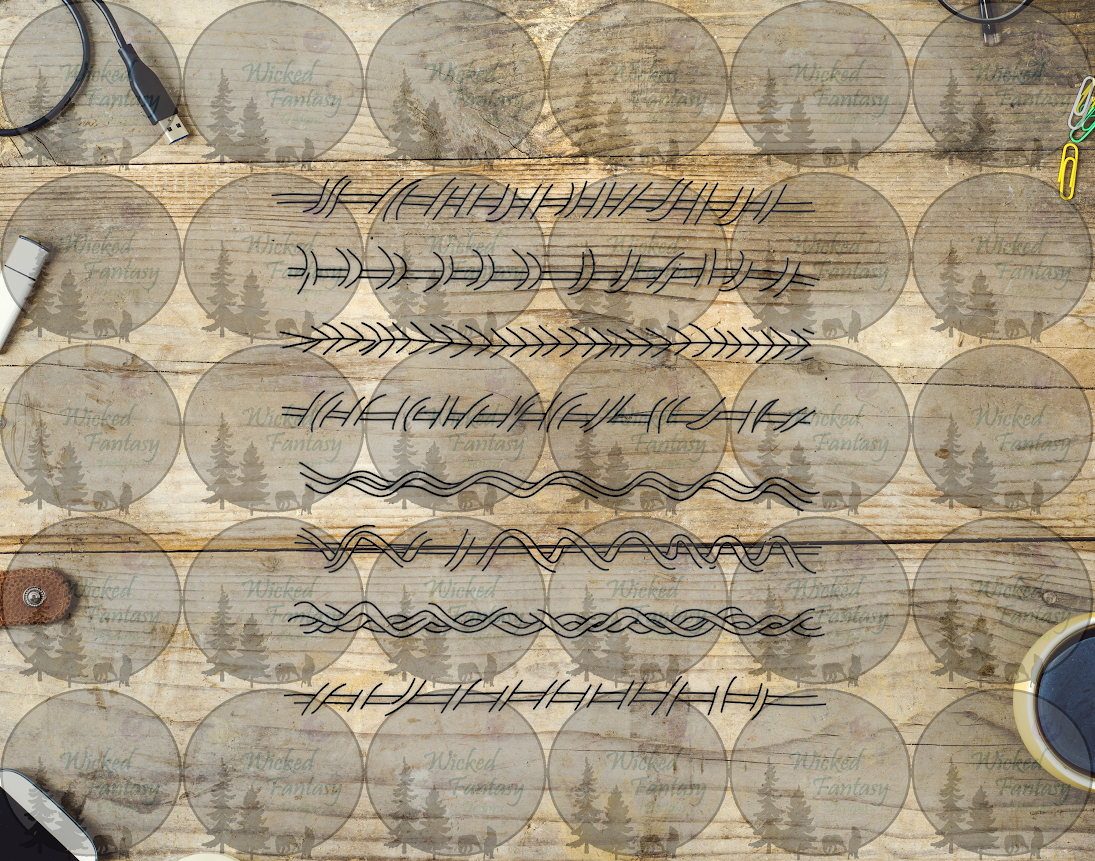 Wicked Wicked Wicked Wicked Wicked Wicked
Fantasy Fantasy Fantasy Fantasy Fantasy Fantasy
Wicked Wicked Wicked Wicked Wicked Wicked
Fantasy Fantasy Fantasy Fantasy Fantasy Fantasy
Wicked Wicked Wicked Wicked Wicked Wicked
Fantasy Fantasy Fantasy Fantasy Fantasy Fantasy
Wicked Wicked Wicked Wicked Wicked Wicked
Fantasy Fantasy Fantasy Fantasy Fantasy Fantasy
Wicked Wicked Wicked Wicked Wicked Wicked
Fantasy Fantasy Fantasy Fantasy Fantasy Fantasy